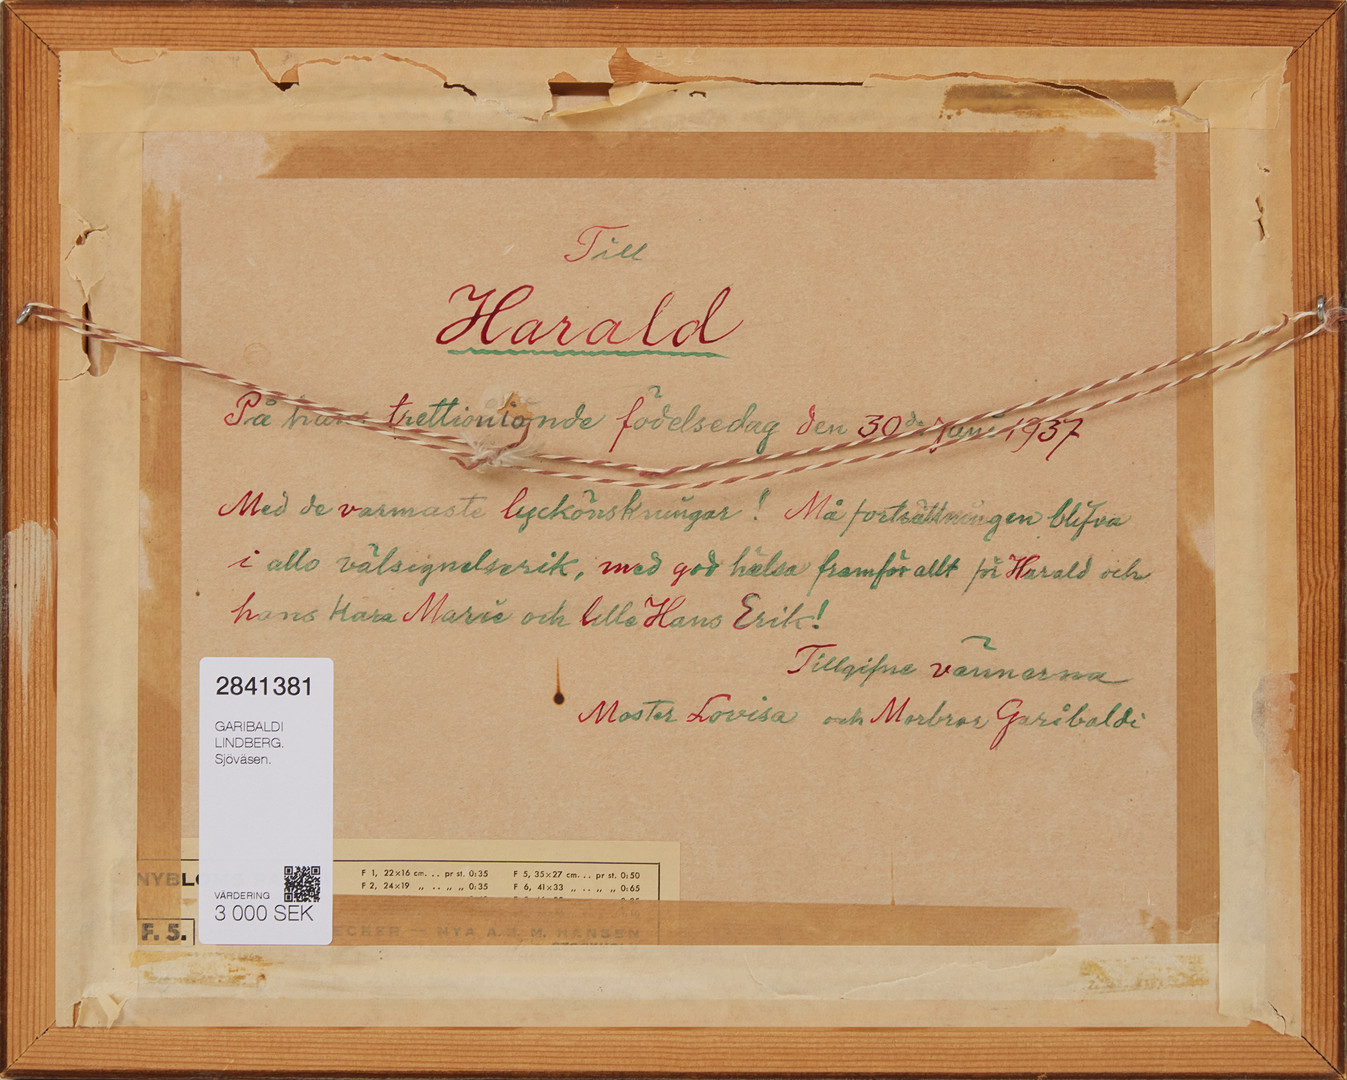 Till
Harald
På hans trettionionde födelsedag den 30de Juni 1937
Med de varmaste lyckönskningar! Må fortsättningen blifva
i allo välsignelserik, med god hälsa framför allt för Harald och
hans kära Marie och lille Hans Erik!
Tillgifne vännerna
Moster Lovisa och Morbror Garibaldi
2841381
GARIBALDI
LINDBERG.
Sjöväsen.
VÄRDERING
3 000 SEK
NYBLO
F. 5.
F 1, 22×16 cm. . . pr st. 0:35 F 5, 35×27 cm. . . pr st. 0:50
F 2, 24×19 „ . . „ „ 0:35 F 6, 41×33 „ . . „ „ 0:65
ECKER — NYA A. J. M. HANSEN